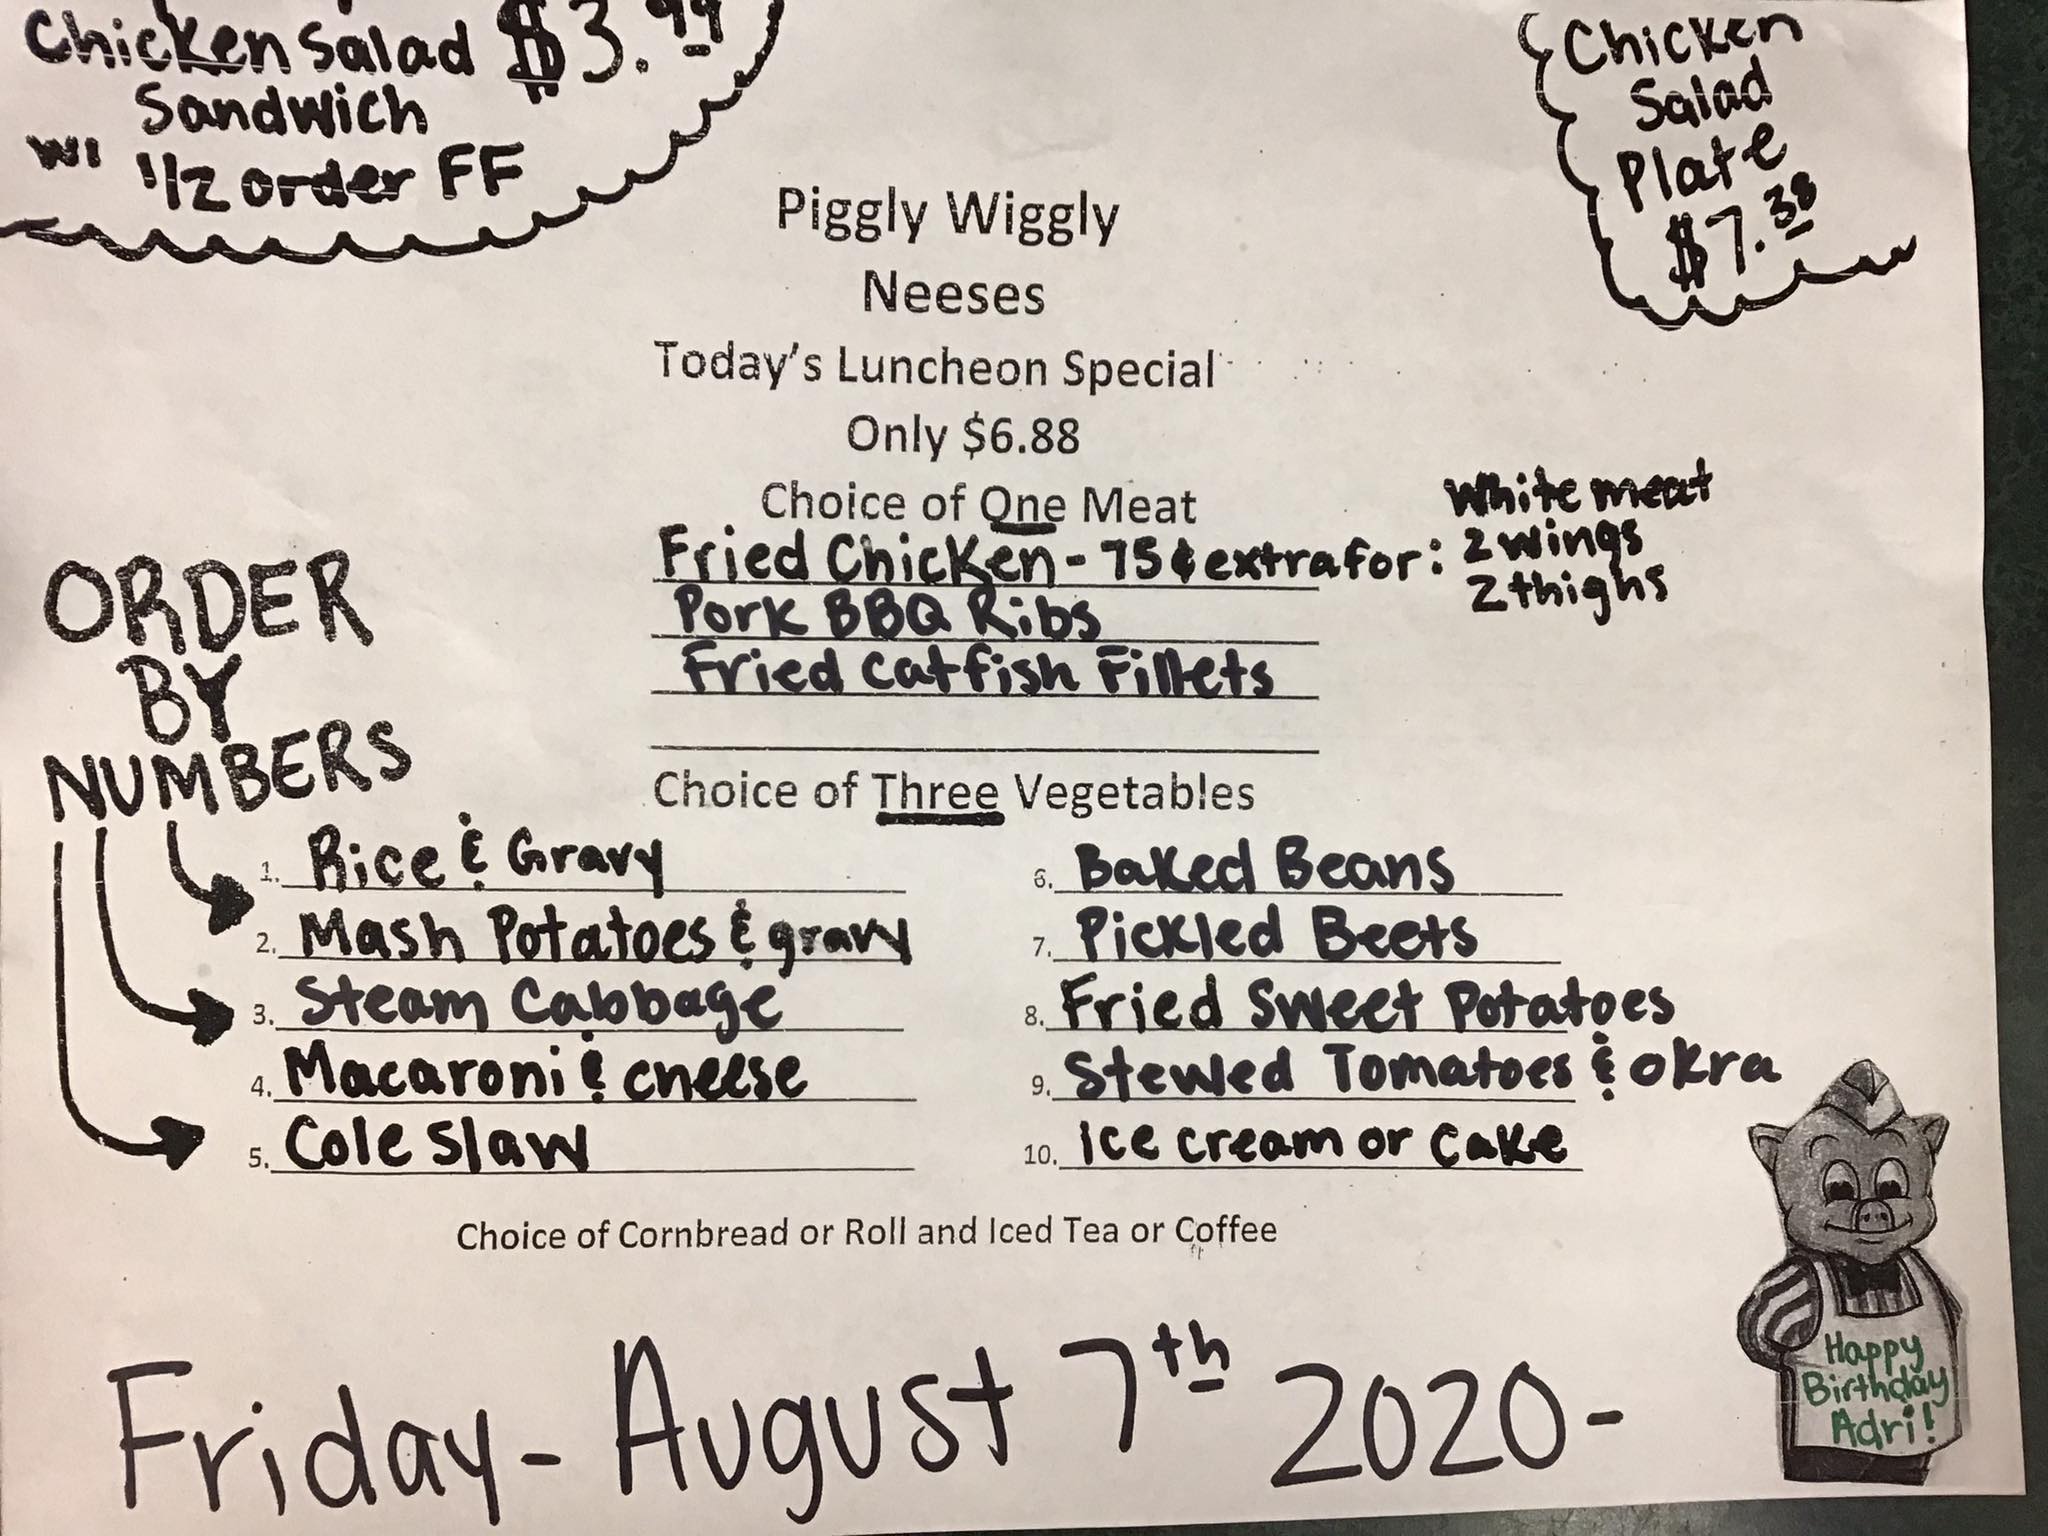 Chicken Salad $3.99
Sandwich
w/ 1/2 order FF
Chicken
Salad
Plate
$7.38
Piggly Wiggly
Neeses
Today's Luncheon Special
Only $6.88
Choice of One Meat
Fried Chicken - 75¢ extra for: White meat
2 wings
2 thighs
Pork BBQ Ribs
Fried Catfish Fillets
ORDER
BY
NUMBERS
Choice of Three Vegetables
1. Rice & Gravy
2. Mash Potatoes & gravy
3. Steam Cabbage
4. Macaroni & cheese
5. Cole Slaw
6. Baked Beans
7. Pickled Beets
8. Fried Sweet Potatoes
9. Stewed Tomatoes & okra
10. Ice cream or Cake
Choice of Cornbread or Roll and Iced Tea or Coffee
Happy
Birthday
Adri!
Friday - August 7th 2020 -